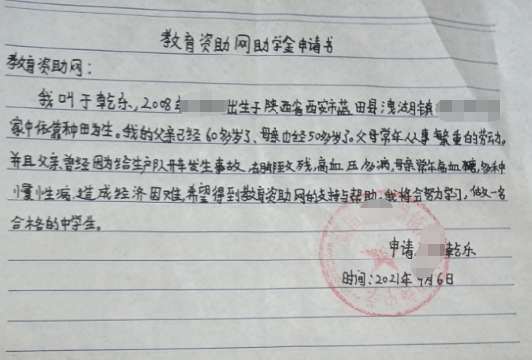 教育资助网助学金申请书
教育资助网：
我叫于乾乐，2008年出生于陕西省西安市蓝田县洩湖镇
家中依靠种田为生。我的父亲已经60多岁了、母亲也经50多岁了。父母常年从事繁重的劳动。
并且父亲曾经因为给生产队开车发生事故，残，高血压多病，母亲常年高血糖，多种
慢性病，造成经济困难，希望得到教育资助网的支持与帮助，我将会努力学习，做一名
合格的中学生。
申请 乾乐
时间：2021年9月6日